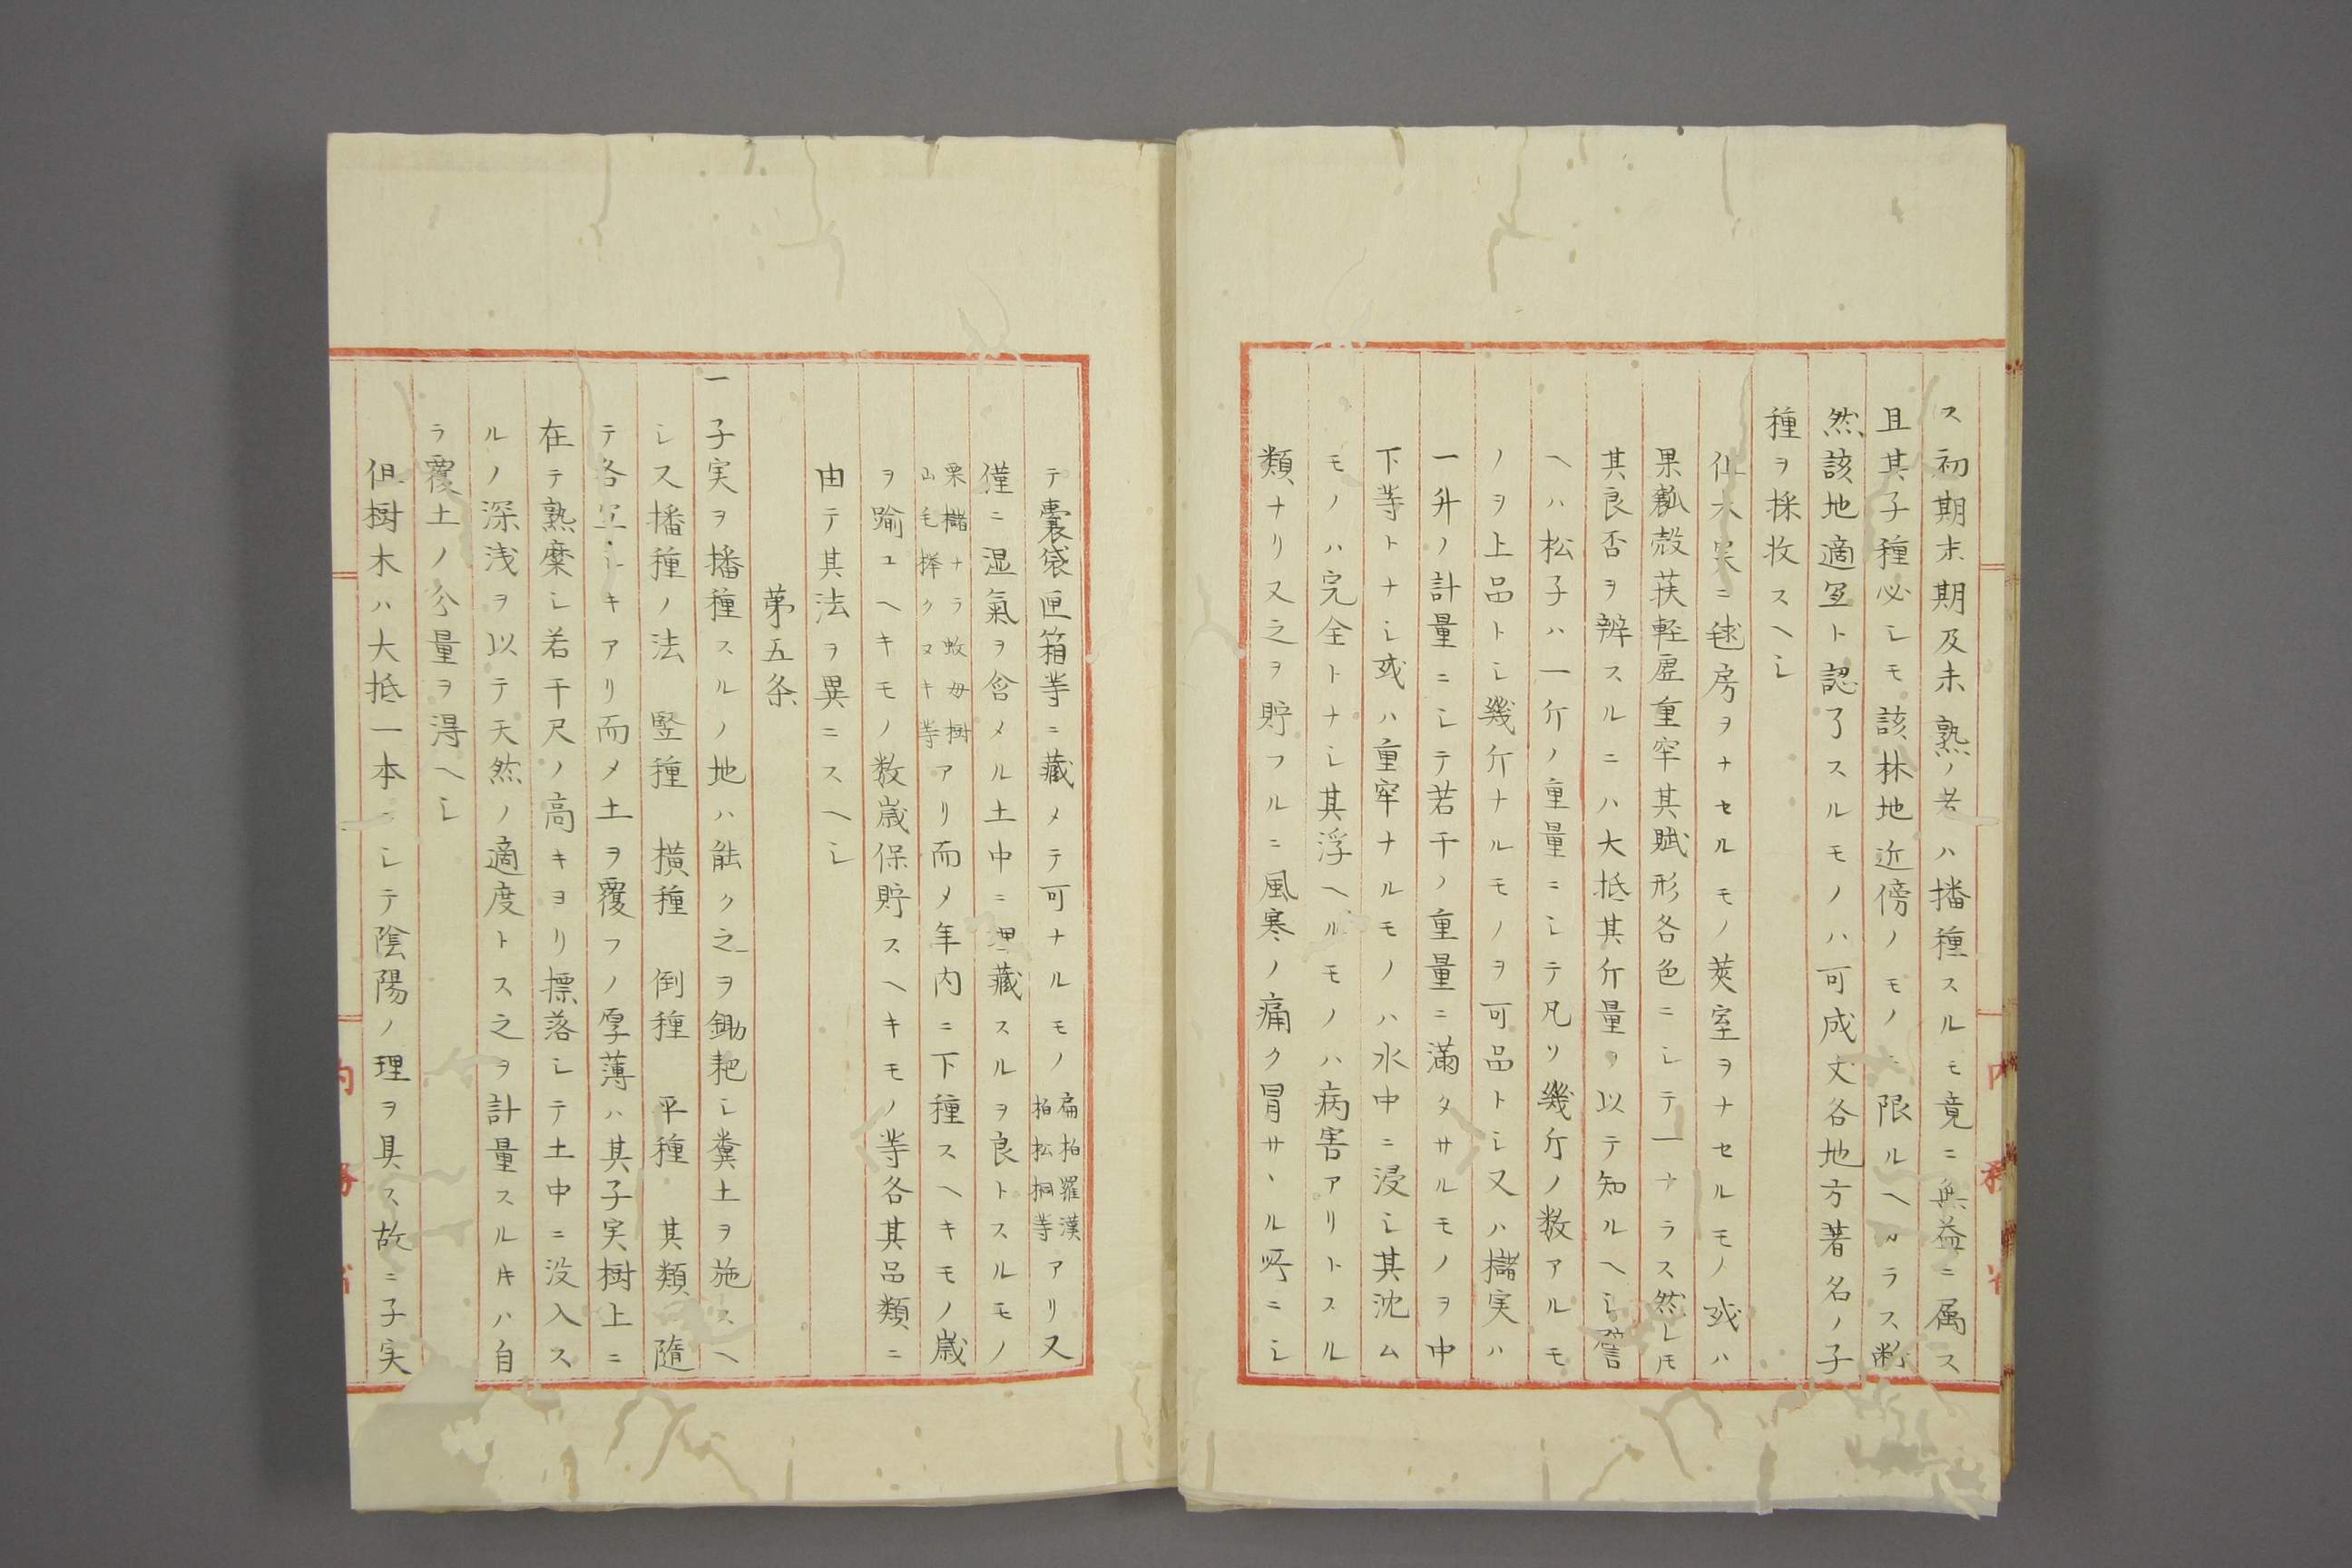 ス初期末期及未熟ノ者ハ播種スルモ竟ニ無益ニ属ス
且其子種必シモ該林地近傍ノモノニ限ルヘカラス断
然該地適宜ト認了スルモノハ可成丈各地方著名ノ子
種ヲ採收スヘシ
但木実ニ毬房ヲナセルモノ莢室ヲナセルモノ或ハ
果瓤殻莢軽虚重牢其賦形各色ニシテ一ナラス然レ𪜈
其良否ヲ辨スルニハ大抵其斤量ヲ以テ知ルヘシ譬
ヘハ松子ハ一斤ノ重量ニシテ凡ソ幾斤ノ数アルモ
ノヲ上品トシ幾斤ナルモノヲ可品トシ又ハ櫧実ハ
一升ノ計量ニシテ若干ノ重量ニ満タサルモノヲ中
下等トナシ或ハ重牢ナルモノハ水中ニ浸シ其沈ム
モノハ完全トナシ其浮ヘルモノハ病害アリトスル
類ナリ又之ヲ貯フルニ風寒ノ痛ク冒サヽル所ニシ
内務省
テ嚢袋匣箱等ニ藏メテ可ナルモノ扁柏羅漢柏松桐等アリ又
僅ニ湿氣ヲ含メル土中ニ埋藏スルヲ良トスルモノ
栗櫧ナラ蚊母樹山毛榉クヌキ等アリ而メ年内ニ下種スヘキモノ歳
ヲ踰ユヘキモノ数歳保貯スヘキモノ等各其品類ニ
由テ其法ヲ異ニスヘシ
第五条
一子実ヲ播種スルノ地ハ能ク之ヲ鋤耙シ糞土ヲ施スヘ
シス播種ノ法 竪種 横種 倒種 平種 其類隨
テ各宜シキアリ而メ土ヲ覆フノ厚薄ハ其子実樹上ニ
在テ熟糜シ若干尺ノ高キヨリ摽落シテ土中ニ没入ス
ルノ深浅ヲ以テ天然ノ適度トス之ヲ計量スル𪜈ハ自
ラ覆土ノ分量ヲ得ヘシ
但樹木ハ大抵一本ニシテ陰陽ノ理ヲ具ス故ニ子実
内務省